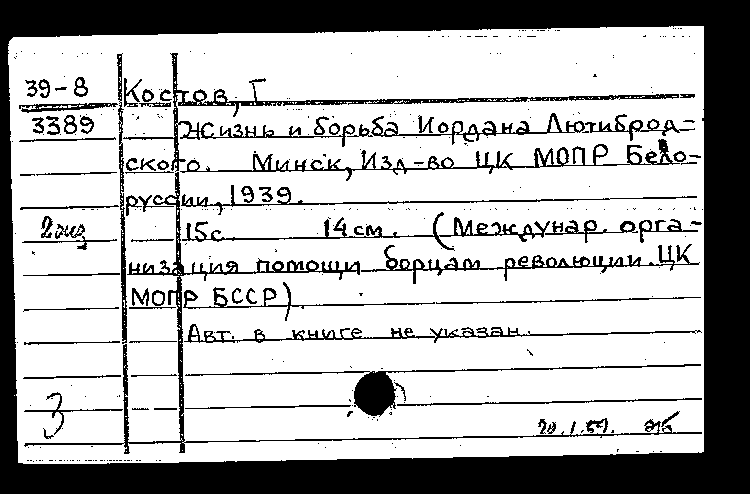 39-8 Костов, Г
3389 Жизнь и борьба Иордана Лютиброд-
ского. Минск, Изд-во ЦК МОПР Бело-
руссии, 1939.
2 экз 15с. 14см. (Междунар. орга-
низация помощи борцам революции. ЦК
МОПР БССР)
Авт. в книге не указан.
3